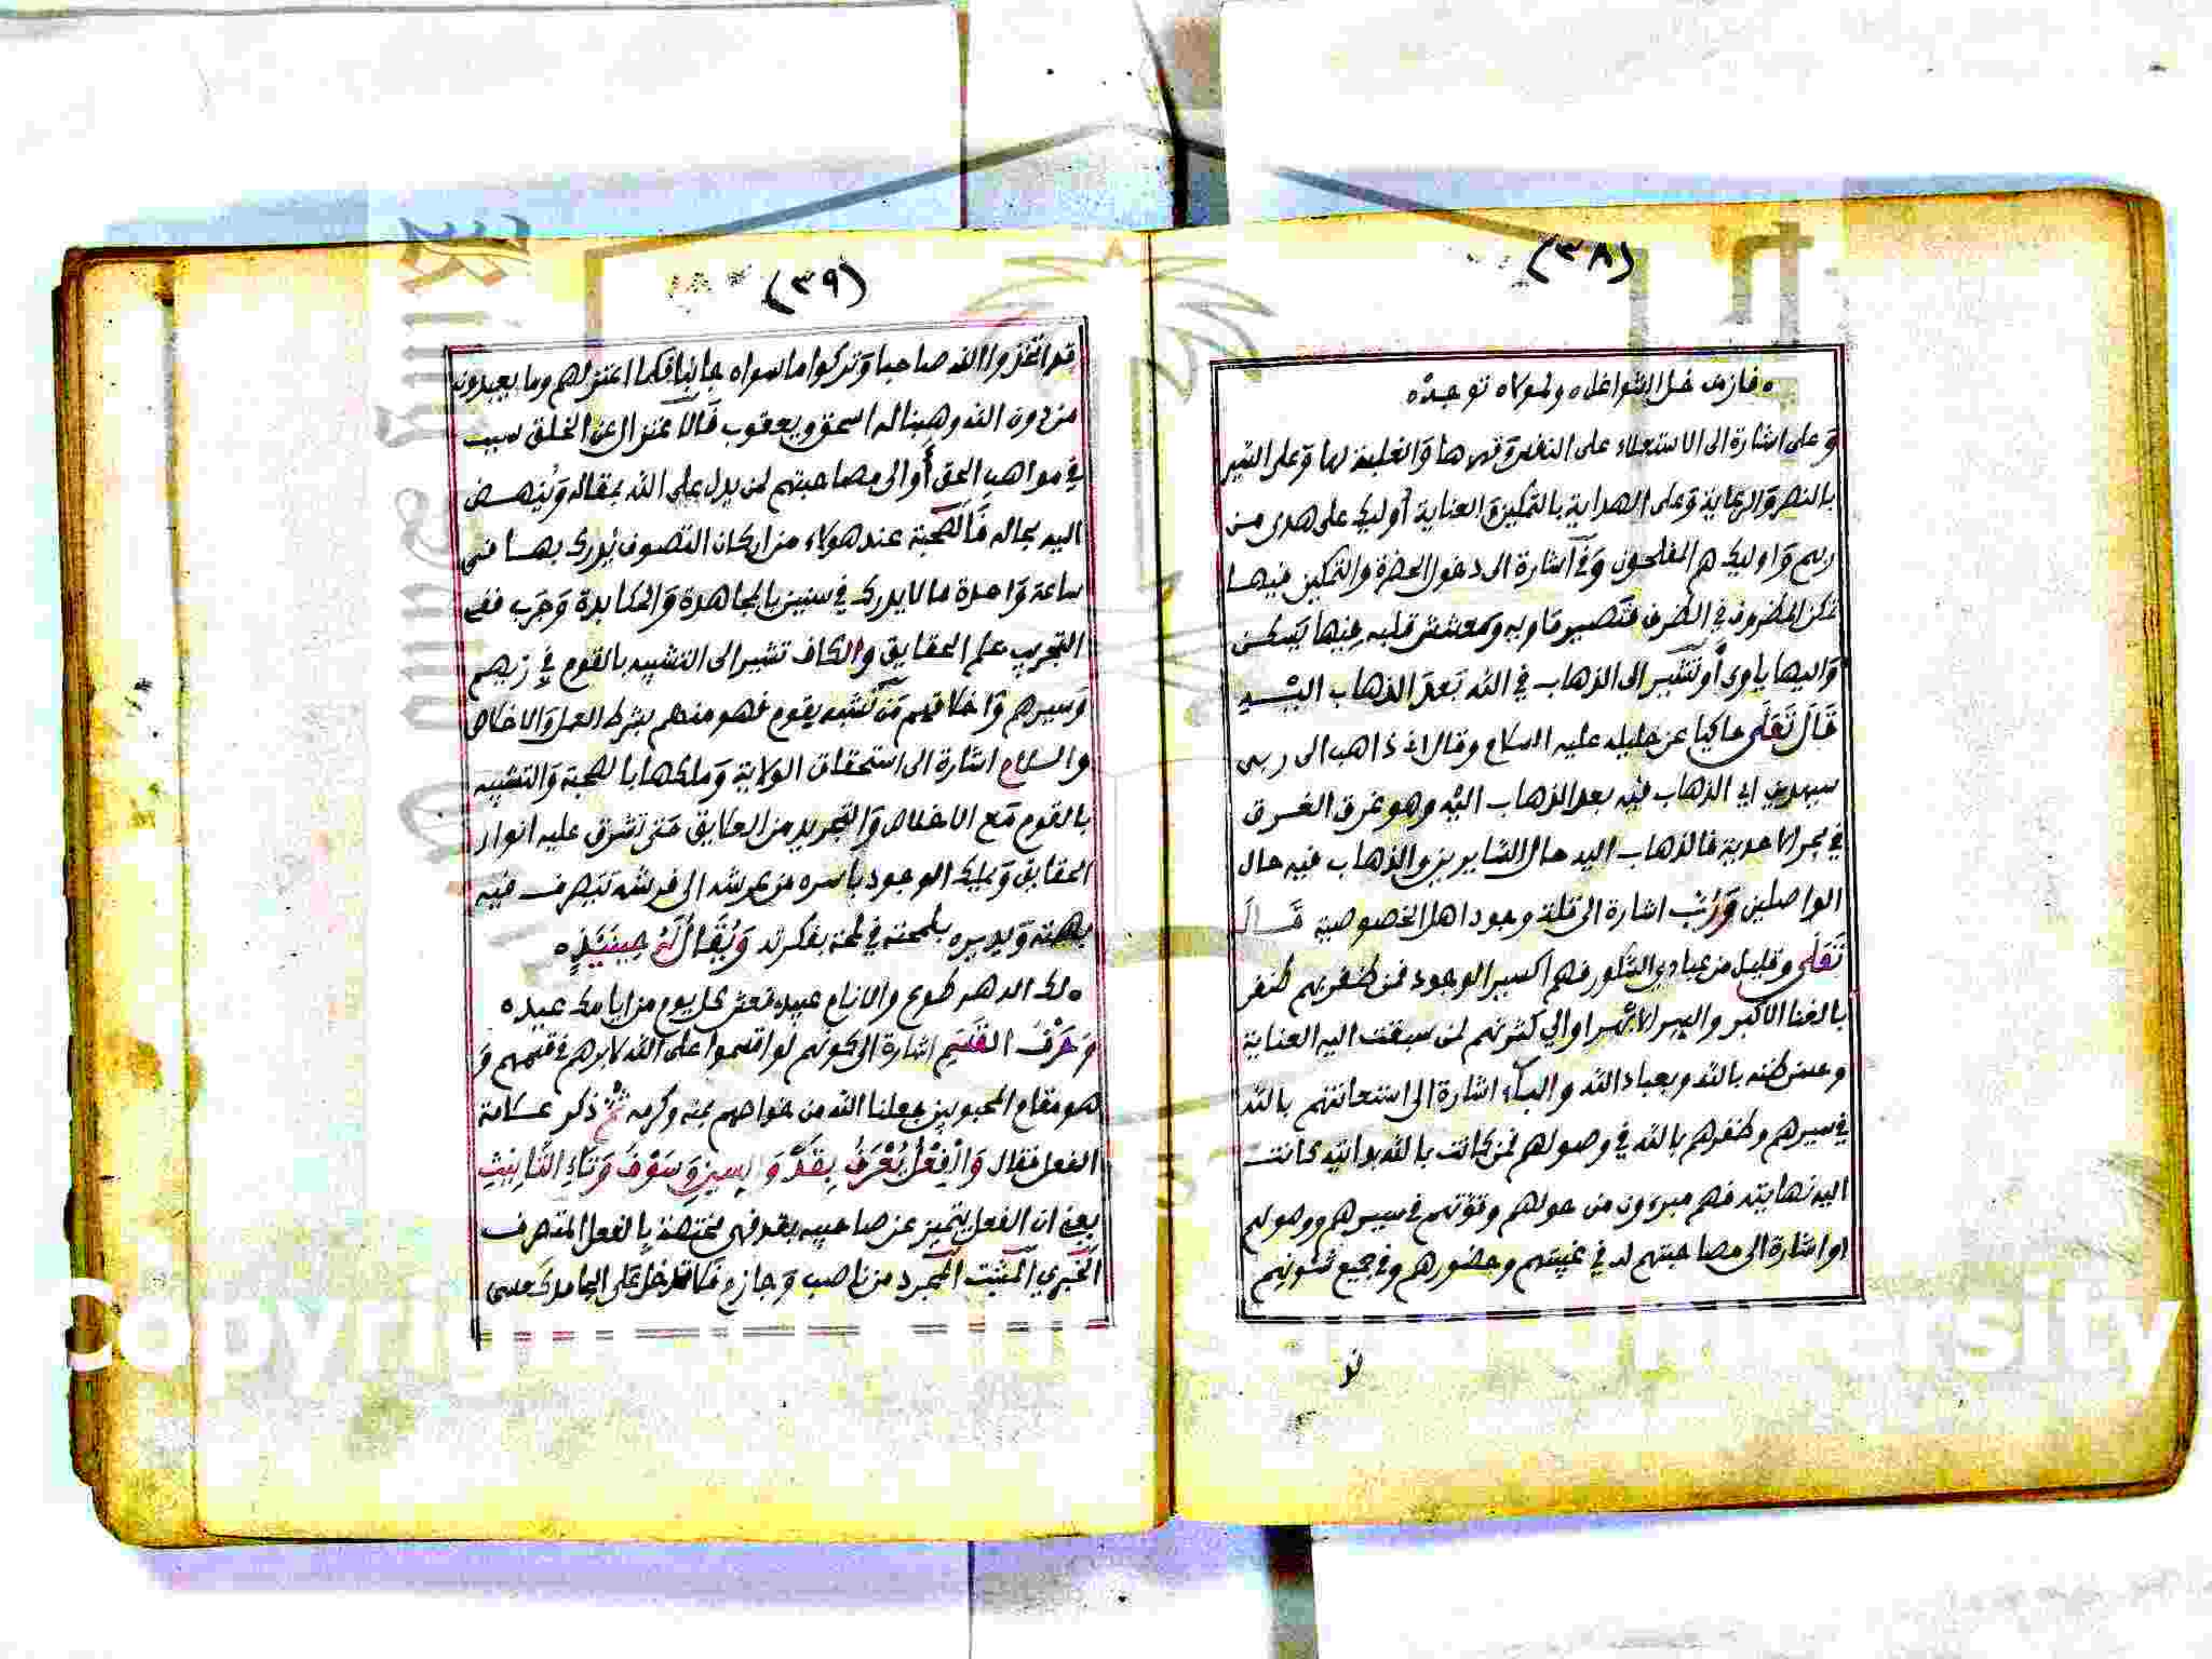 (٣٨)
فازمن خل الشواغل ولمولاه توجه
وَعلى اشارة الى الاستعلاء على النفس وَقهرها وَالغلبة لها وَعلى السير
بالنصر وَالرعاية وَعلى الهداية بالتمكين وَالعناية أوليك على هدى من
ربهم وَاوليك هم المفلحون وَفي اشارة الى دخول الحضرة والتمكين فيها
تمكن المظروف في الظرف فتصير مَاويه ومعشش قلبه فيها يَسكن
وَاليها ياوى أو تشير الى الذهاب في الله بَعدَ الذهاب اليه
قَالَ تَعَلَى حاكيا عن خليله عليه السلام وقال انى ذاهب الى ربى
سيهدين اي الذهاب فيه بعد الذهاب اليه وهو غرق الغرق
في بحر الاحدية فالذهاب اليه حال السايرين والذهاب فيه حال
الواصلين وَرُبَّ اشارة الى قلة وجود اهل الخصوصية قَالَ
تَعَلَى وقليل من عبادي الشكور فهم اكسير الوجود فمن ظفر بهم ظفر
بالغنا الاكبر والسر الابهر اوالي كثرتهم لمن سبقت اليه العناية
وحسن ظنه بالله وبعباد الله والبآء اشارة الى استعانتهم بالله
في سيرهم وظفرهم بالله في وصولهم فمن كانت بالله بدايته كانت
اليه نهايته فهم مبرءون من حولهم وقوتهم في سيرهم ووصولهم
او اشارة الى مصاحبتهم له في غيبتهم وحضورهم وفي جميع شئونهم
(٣٩)
قد اتخذوا الله صاحبا وَتركوا ما سواه جانبا فلما اعتزلهم وما يعبدون
من دون الله وهبنا له اسحق ويعقوب فَالاعتزال عن الخلق سبب
في مواهب الحق أوالى مصاحبتهم لمن يدل على الله بمقاله وَيُنهض
اليه بحاله فَالصحبة عند هولاء من اركان التصوف يُدرك بها في
ساعة وَاحدة ما لا يدرك في سنين بالمجاهدة وَالمكابدة وَجَرب ففي
التجريب علم الحقايق والكاف تشير الى التشبيه بالقوم في زيهم
وَسيرهم وَاخلاقهم مَن تشبه بقوم فهو منهم بشرط العمل وَالاخلاص
والسلام اشارة الى استحقاق الولاية وَملكها بالصحبة وَالتشبيه
بالقوم مَع الاخلاص وَالتجريد من العلايق حَتى تشرق عليه انوار
الحقايق وَيملك الوجود بأسره من عرشه الى فرشه يَتصرف فيه
بهمته وَيديره بلمحته في لمحة بفكرته وَيُقَالُ لَهُ حِينَئِذٍ
لك الدهر طوع والانام عبيد فعش كل يوم من ايامك عيد
وَحَرْفُ القَسَمِ اشارة الى كونهم لو اقسموا على الله لابرهم في قسمهم وَ
هو مقام المحبوبين جعلنا الله من خواصهم بمنه وكرمه ثم ذكر علامة
الفعل فقال وَالْفِعْلُ يُعْرَفُ بِقَدْ وَالسِينِ وَسَوْفَ وَتَاءِ التَّانِيْثِ
يعني ان الفعل يتميز عن صاحبيه بقد فهى مختصة بالفعل المتصرف
الخبري المثبت المجرد من ناصب وَجازم فلا تدخل على الجامد كَعسى